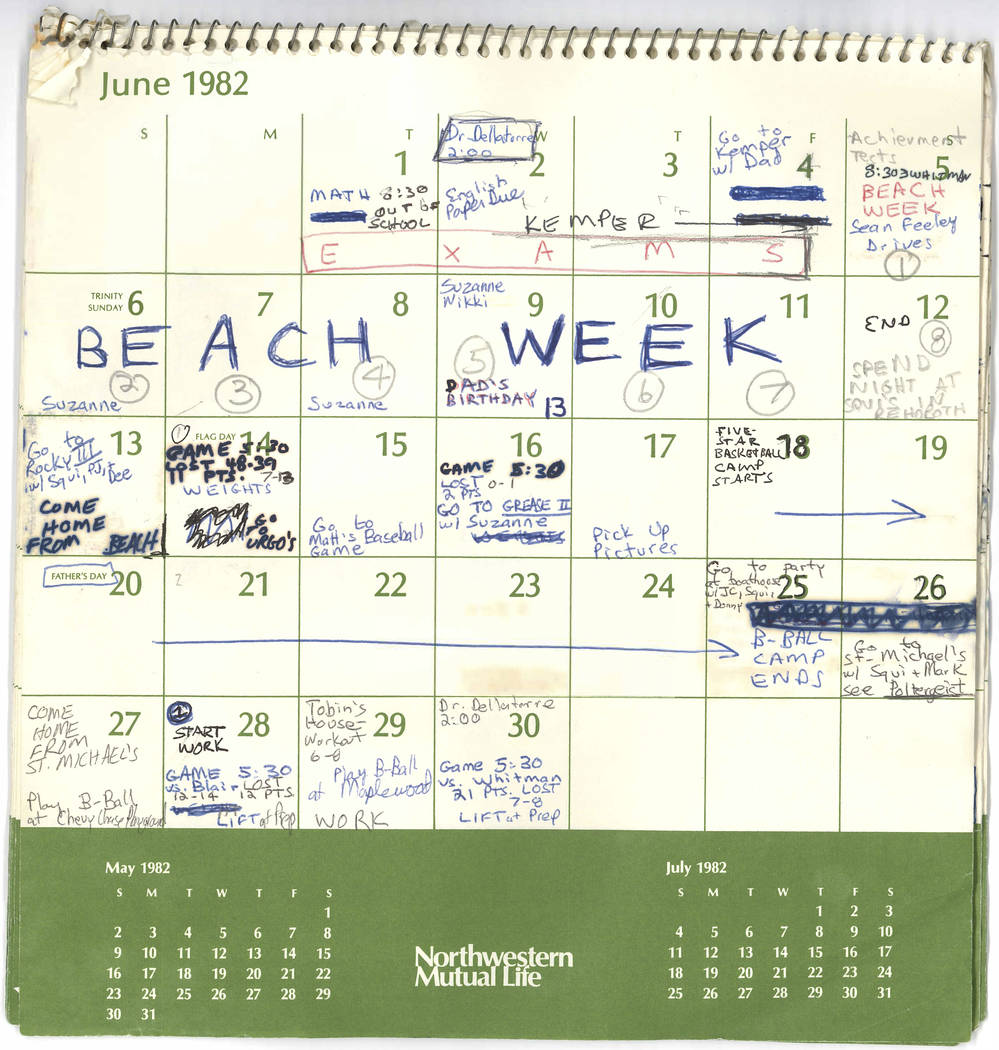 June 1982
S M T W T F S
1
MATH 8:30
OUT OF
SCHOOL
Dr. Dellatorre
2:00
2
English
Paper Due
KEMPER
3
Go to
Kemper
w/ Dad
4
E X A M S
Achievment
Tests
5
8:30 WHITMAN
BEACH
WEEK
Sean Feeley
Drives
1
TRINITY
SUNDAY 6
7
8
Suzanne
Nikki
9
10
11
12
BEACH WEEK
END
2
3
4
5
6
7
8
Suzanne
Suzanne
DAD'S
BIRTHDAY
13
SPEND
NIGHT AT
SQUI'S IN
REHOBOTH
13
Go to
Rocky III
w/ Squi, PJ, +
Dee
COME
HOME
FROM BEACH
1
FLAG DAY 14
GAME 5:30
LOST 48-39
11 PTS. 7-13
WEIGHTS
GO
TO
URGO'S
15
Go to
Matt's Baseball
Game
16
GAME 5:30
LOST 0-1
2 PTS
GO TO GREASE II
w/ Suzanne
17
Pick Up
Pictures
FIVE-
STAR 18
BASKETBALL
CAMP
STARTS
19
FATHER'S DAY 20
2
21
22
23
24
Go to party
at boathouse 25
w/ JC, Squi,
+ Donny
B-BALL
CAMP
ENDS
26
Go to
St. Michael's
w/ Squi + Mark
see Poltergeist
COME
HOME 27
FROM
ST. MICHAEL'S
Play B-Ball
at Chevy Chase Playground
1
28
START
WORK
GAME 5:30
vs. Blair LOST
12-14 12 PTS
LIFT at Prep
Tobin's
House- 29
Workout
6-8
Play B-Ball
at Maplewood
WORK
Dr. Dellatorre
2:00
30
Game 5:30
vs. Whitman
21 PTS. LOST
7-8
LIFT at Prep
May 1982
S M T W T F S
1
2 3 4 5 6 7 8
9 10 11 12 13 14 15
16 17 18 19 20 21 22
23 24 25 26 27 28 29
30 31
Northwestern
Mutual Life
July 1982
S M T W T F S
1 2 3
4 5 6 7 8 9 10
11 12 13 14 15 16 17
18 19 20 21 22 23 24
25 26 27 28 29 30 31